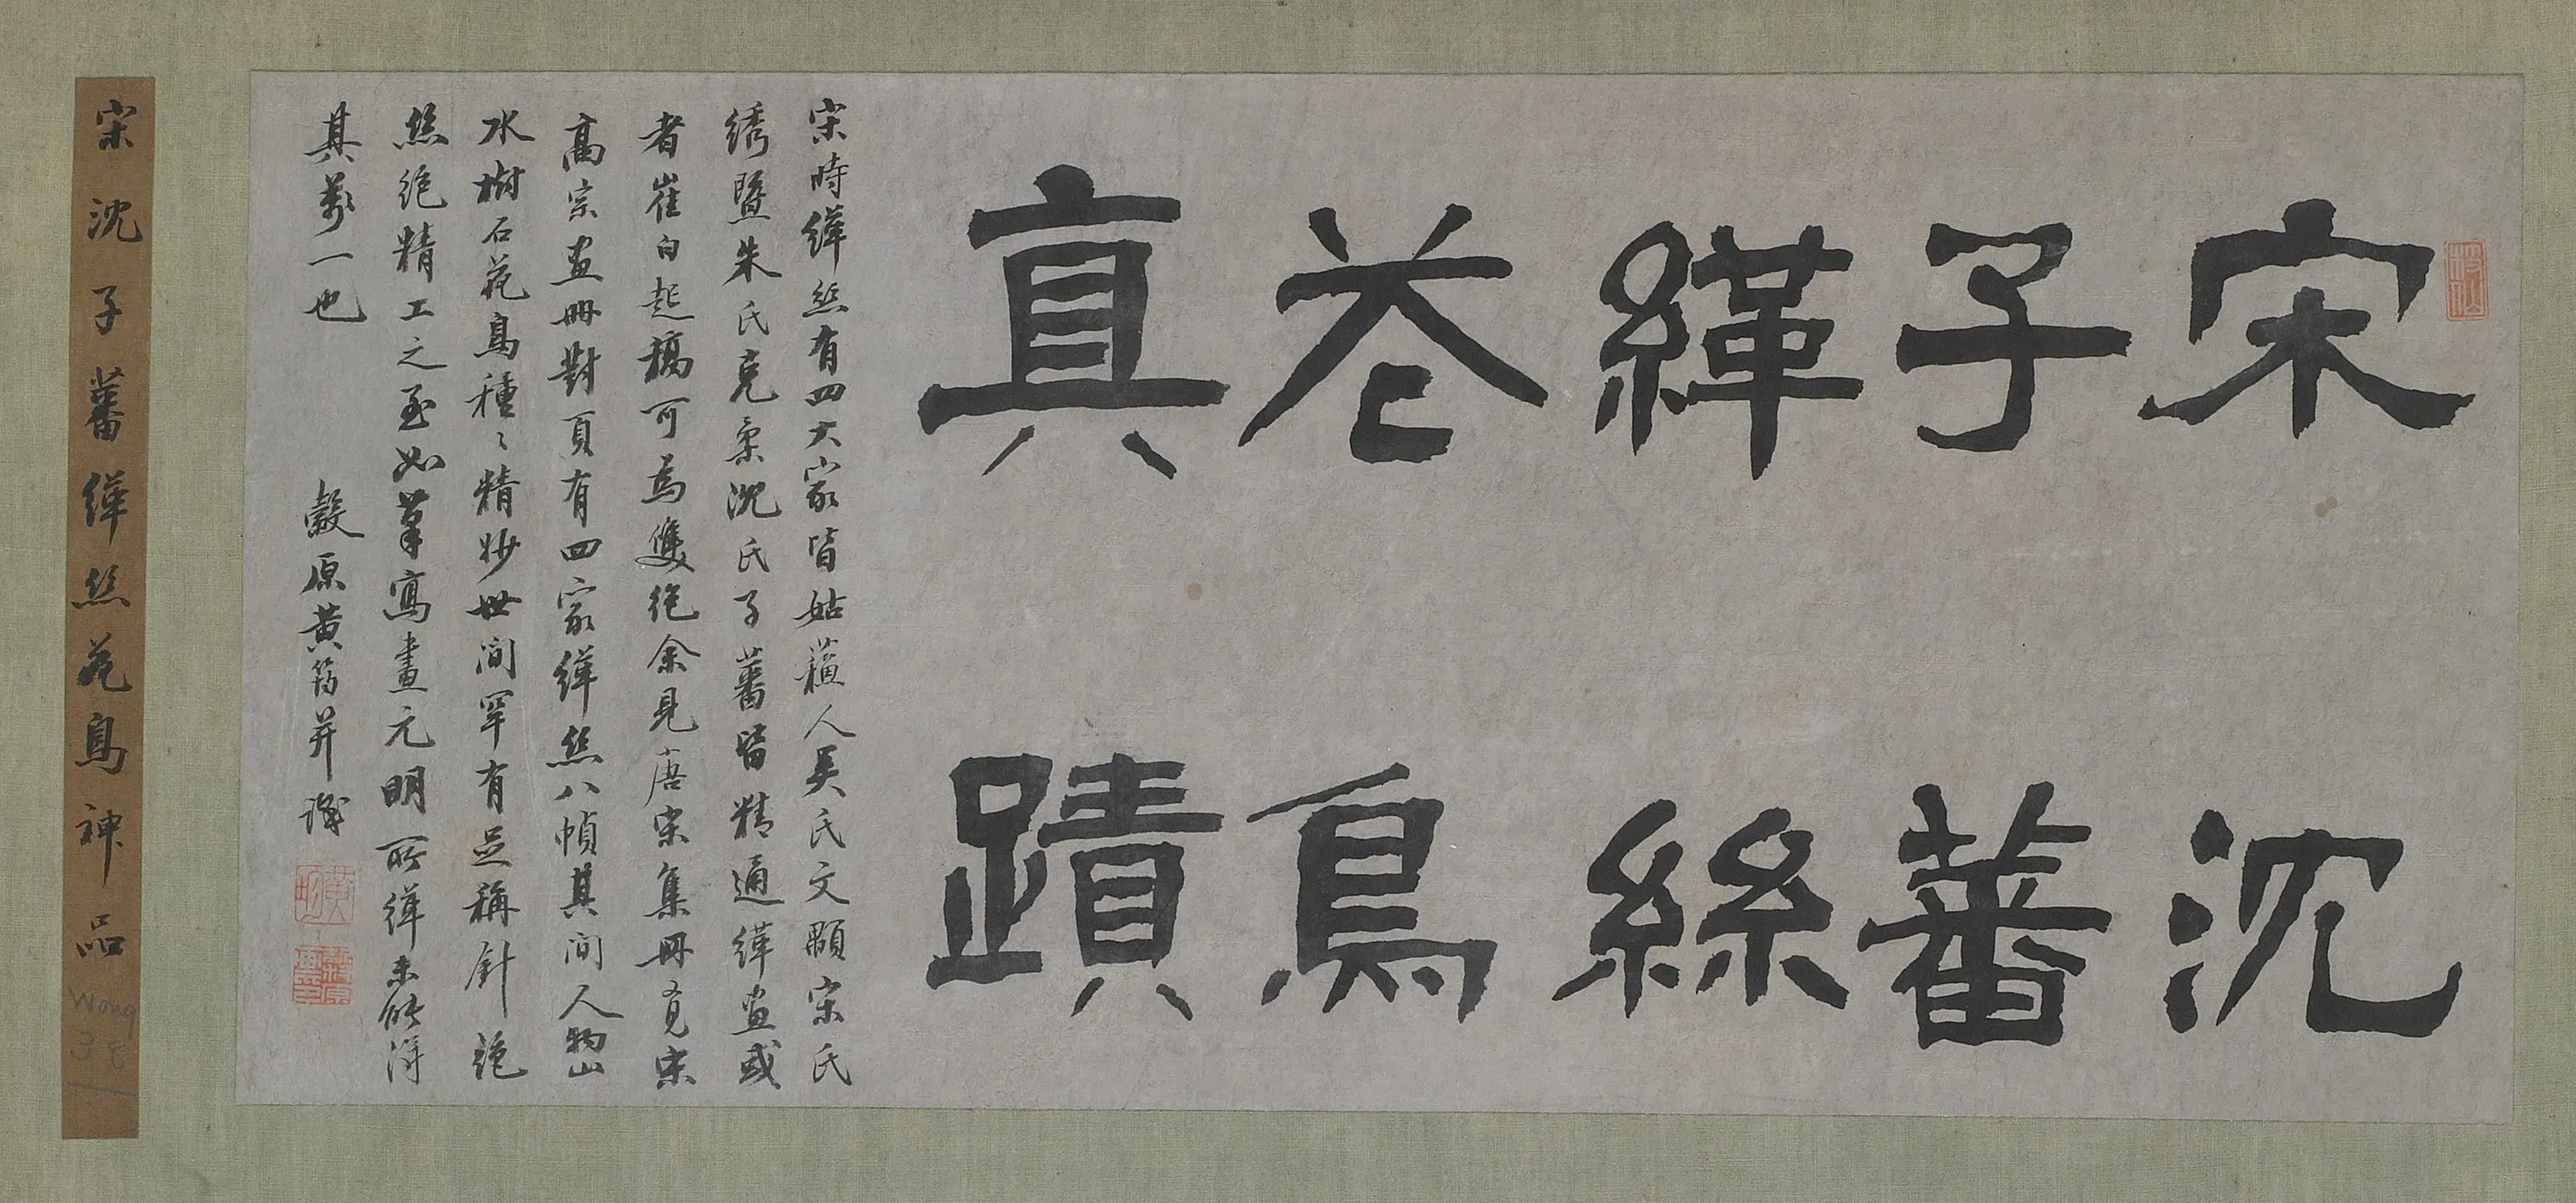 宋沈
子蕃
緙絲
花鳥
真蹟
宋時緙絲有四大家皆姑蘓人吴氏文顯宋氏
綉暨朱氏克柔沈氏子蕃皆精通緙畫或
者崔白起稿可為雙絶余見唐宋集冊有宋
高宗畫冊對頁有四家緙絲八幀其间人物山
水樹石花鳥種〻精妙世间罕有足稱針絶
絲絶精工之至如筆寫畫元明所緙未能得
其萬一也
穀原黄筠并識
宋沈子蕃緙絲花鳥神品
Wong
38